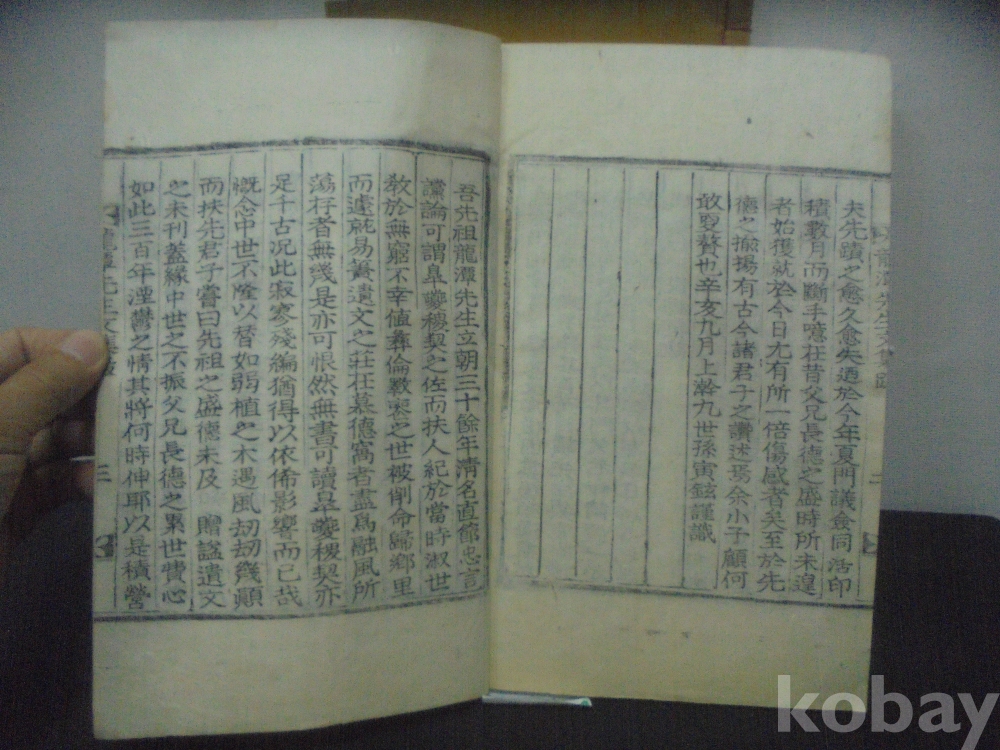 夫先蹟之愈久愈失迺於今年夏門議僉同活印
積數月而斷手噫在昔父兄長德之盛時所未遑
者始獲就於今日尤有所一倍傷感者矣至於先
德之揄揚有古今諸君子之讚述焉余小子顧何
敢更贅也辛亥九月上澣九世孫寅鉉謹識
吾先祖龍潭先生立朝三十餘年淸名直節忠言
讜論可謂皐夔稷契之佐而扶人紀於當時淑世
敎於無窮不幸値彛倫斁喪之世被削命歸鄕里
而遽能易簀遺文之莊在慕德窩者盡爲融風所
蕩存者無幾是亦可恨然無書可讀皐夔稷契亦
足千古況此寂寥殘編猶得以依俙影響而已哉
慨念中世不隆以替如弱植之木遇風刼刼幾顚
而扶先君子嘗曰先祖之盛德未及 贈諡遺文
之未刊蓋緣中世之不振父兄長德之累世費心
如此三百年湮鬱之情其將何時伸耶以是積營
龍潭先生文集
三
kobay